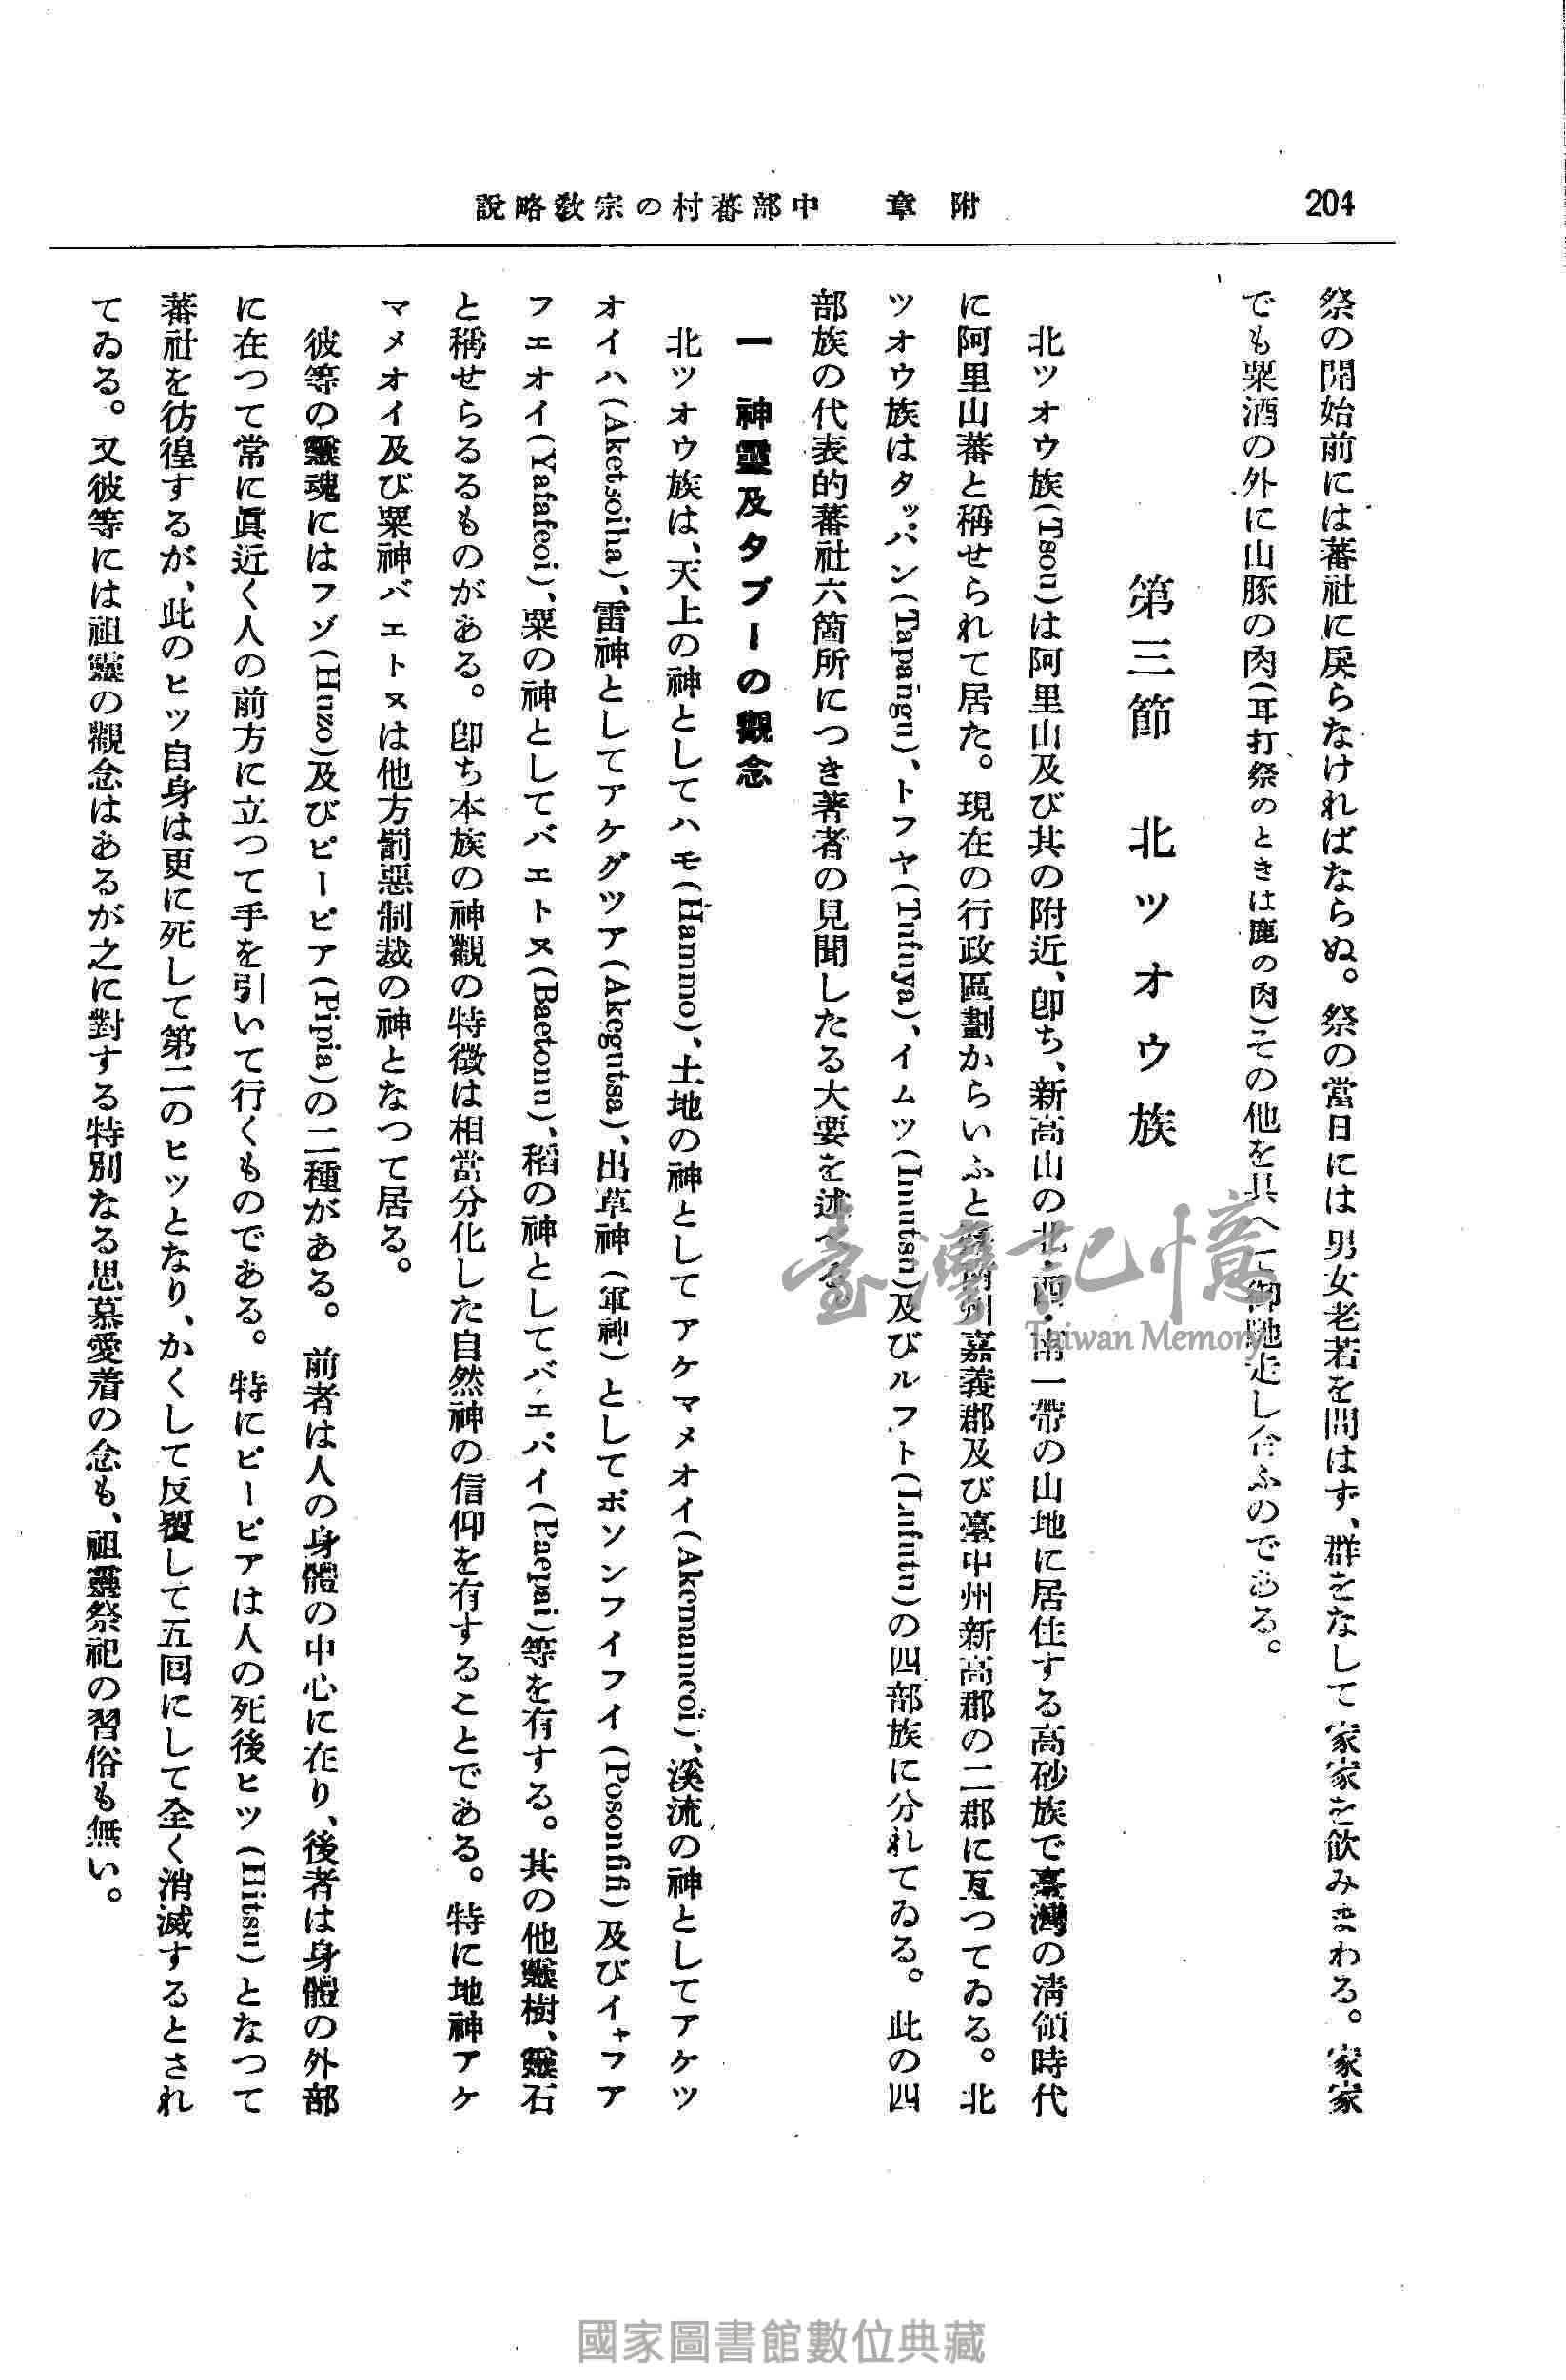 204
附章 中部蕃村の宗教略説
祭の開始前には蕃社に戻らなければならぬ。祭の當日には男女老若を問はず、群をなして家家を飲みまわる。家家
でも粟酒の外に山豚の肉(耳打祭のときは鹿の肉)その他を具へて御馳走し合ふのである。
第三節 北ツオウ族
北ツオウ族(Tsou)は阿里山及び其の附近、卽ち、新高山の北・西・南一帶の山地に居住する高砂族で臺灣の淸領時代
に阿里山蕃と稱せられて居た。現在の行政區劃からいふと臺南州嘉義郡及び臺中州新高郡の二郡に亙つてゐる。北
ツオウ族はタッパン(Tapañgu)、トフヤ(Tufuya)、イムツ(Imutsu)及びルフト(Lufutu)の四部族に分れてゐる。此の四
部族の代表的蕃社六箇所につき著者の見聞したる大要を述べる。
一 神靈及タブーの觀念
北ツオウ族は、天上の神としてハモ(Hammo)、土地の神としてアケマメオイ(Akemameoi)、溪流の神としてアケツ
オイハ(Aketsoiha)、雷神としてアケグツア(Akegutsa)、出草神(軍神)としてポソンフイフイ(Posonfifi)及びイャフア
フェオイ(Yafafeoi)、粟の神としてバエトヌ(Baetonu)、稻の神としてバエパイ(Baepai)等を有する。其の他靈樹、靈石
と稱せらるるものがある。卽ち本族の神觀の特徵は相當分化した自然神の信仰を有することである。特に地神アケ
マメオイ及び粟神バエトヌは他方罰惡制裁の神となつて居る。
彼等の靈魂にはフゾ(Huzo)及びピーピア(Pipia)の二種がある。前者は人の身體の中心に在り、後者は身體の外部
に在つて常に眞近く人の前方に立つて手を引いて行くものである。特にピーピアは人の死後ヒツ(Hitsu)となつて
蕃社を彷徨するが、此のヒツ自身は更に死して第二のヒツとなり、かくして反覆して五回にして全く消滅するとされ
てゐる。又彼等には祖靈の觀念はあるが之に對する特別なる思慕愛着の念も、祖靈祭祀の習俗も無い。
臺灣記憶
Taiwan Memory
國家圖書館數位典藏